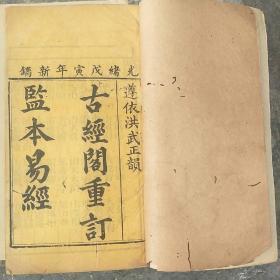 光緒戊寅年新鐫
遵依洪武正韻
古經閣重訂
監本易經